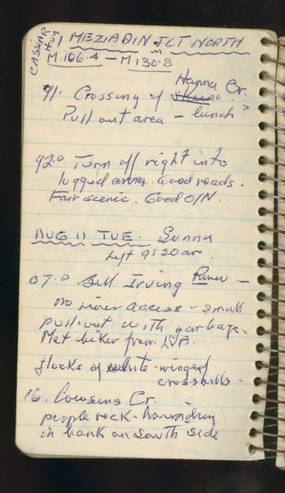 CASSIAR HWY
MEZIADIN JCT NORTH
M 106.4 – M 130.8
91. Crossing of Hanna Cr.
Pull out area – lunch?
92.0 Turn off right into
logged area. Good roads.
Fair scenic. Good O/N.
AUG 11 TUE. Sunny
Left 9:20 am.
07.0 Bell Irving River –
no river access – small
pull-out with garbage.
Met biker from
flocks of white-winged
crossbills.
16. Cousins Cr.
purple rock – 
in bank on south side